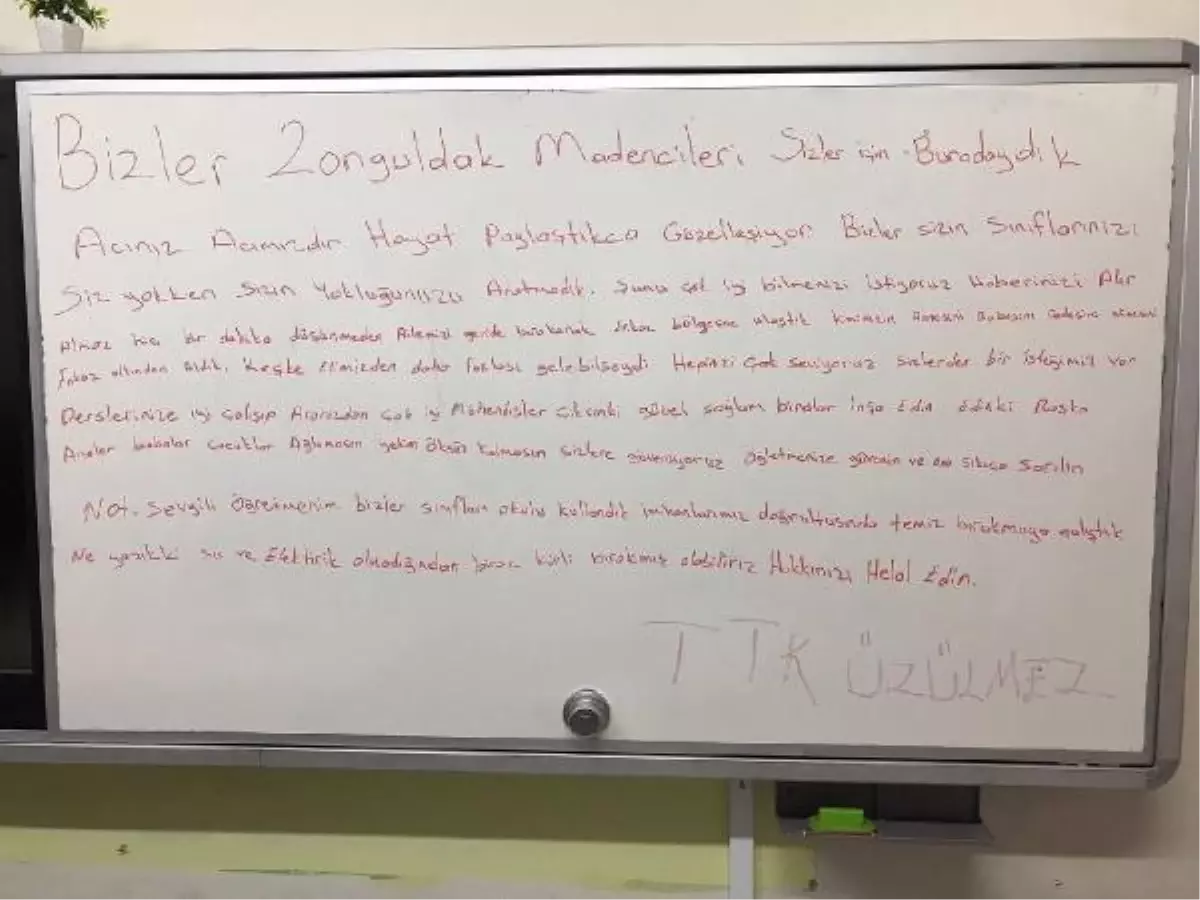 Bizler Zonguldak Madencileri Sizler için Buradaydık
Acınız Acımızdır Hayat Paylaştıkca Güzelleşiyor Bizler sizin Sınıflarınızı
Siz yokken Sizin Yokluğunuzu Aratmadık. Şunu çok iyi bilmenizi istiyoruz Haberinizi Alır
Almaz bir dakika düşünmeden Ailemizi geride bırakarak Enkaz bölgesine ulaştık kiminizin Annesini Babasını
Enkaz altından aldık. Keşke Elimizden daha fazlası gelebilseydi Hepinizi Çok seviyoruz sizlerden bir isteğimiz var
Derslerinize iyi çalışıp Aranızdan Çok iyi Mühendisler çıksınki güzel sağlam binalar inşa Edin Edinki Başka
Analar babalar çocuklar Ağlamasın yetim Öksüz kalmasın sizlere güveniyoruz Öğretmenize güvenin ve sıkıca Sarılın
Not. Sevgili Öğretmenim bizler sınıfları okulu kullandık imkanlarımız doğrultusunda temiz bırakmaya çalıştık
Ne yazıkki su ve Elektrik olmadığından biraz kirli bırakmış olabiliriz Hakkınızı Helal Edin.
TTK ÜZÜLMEZ